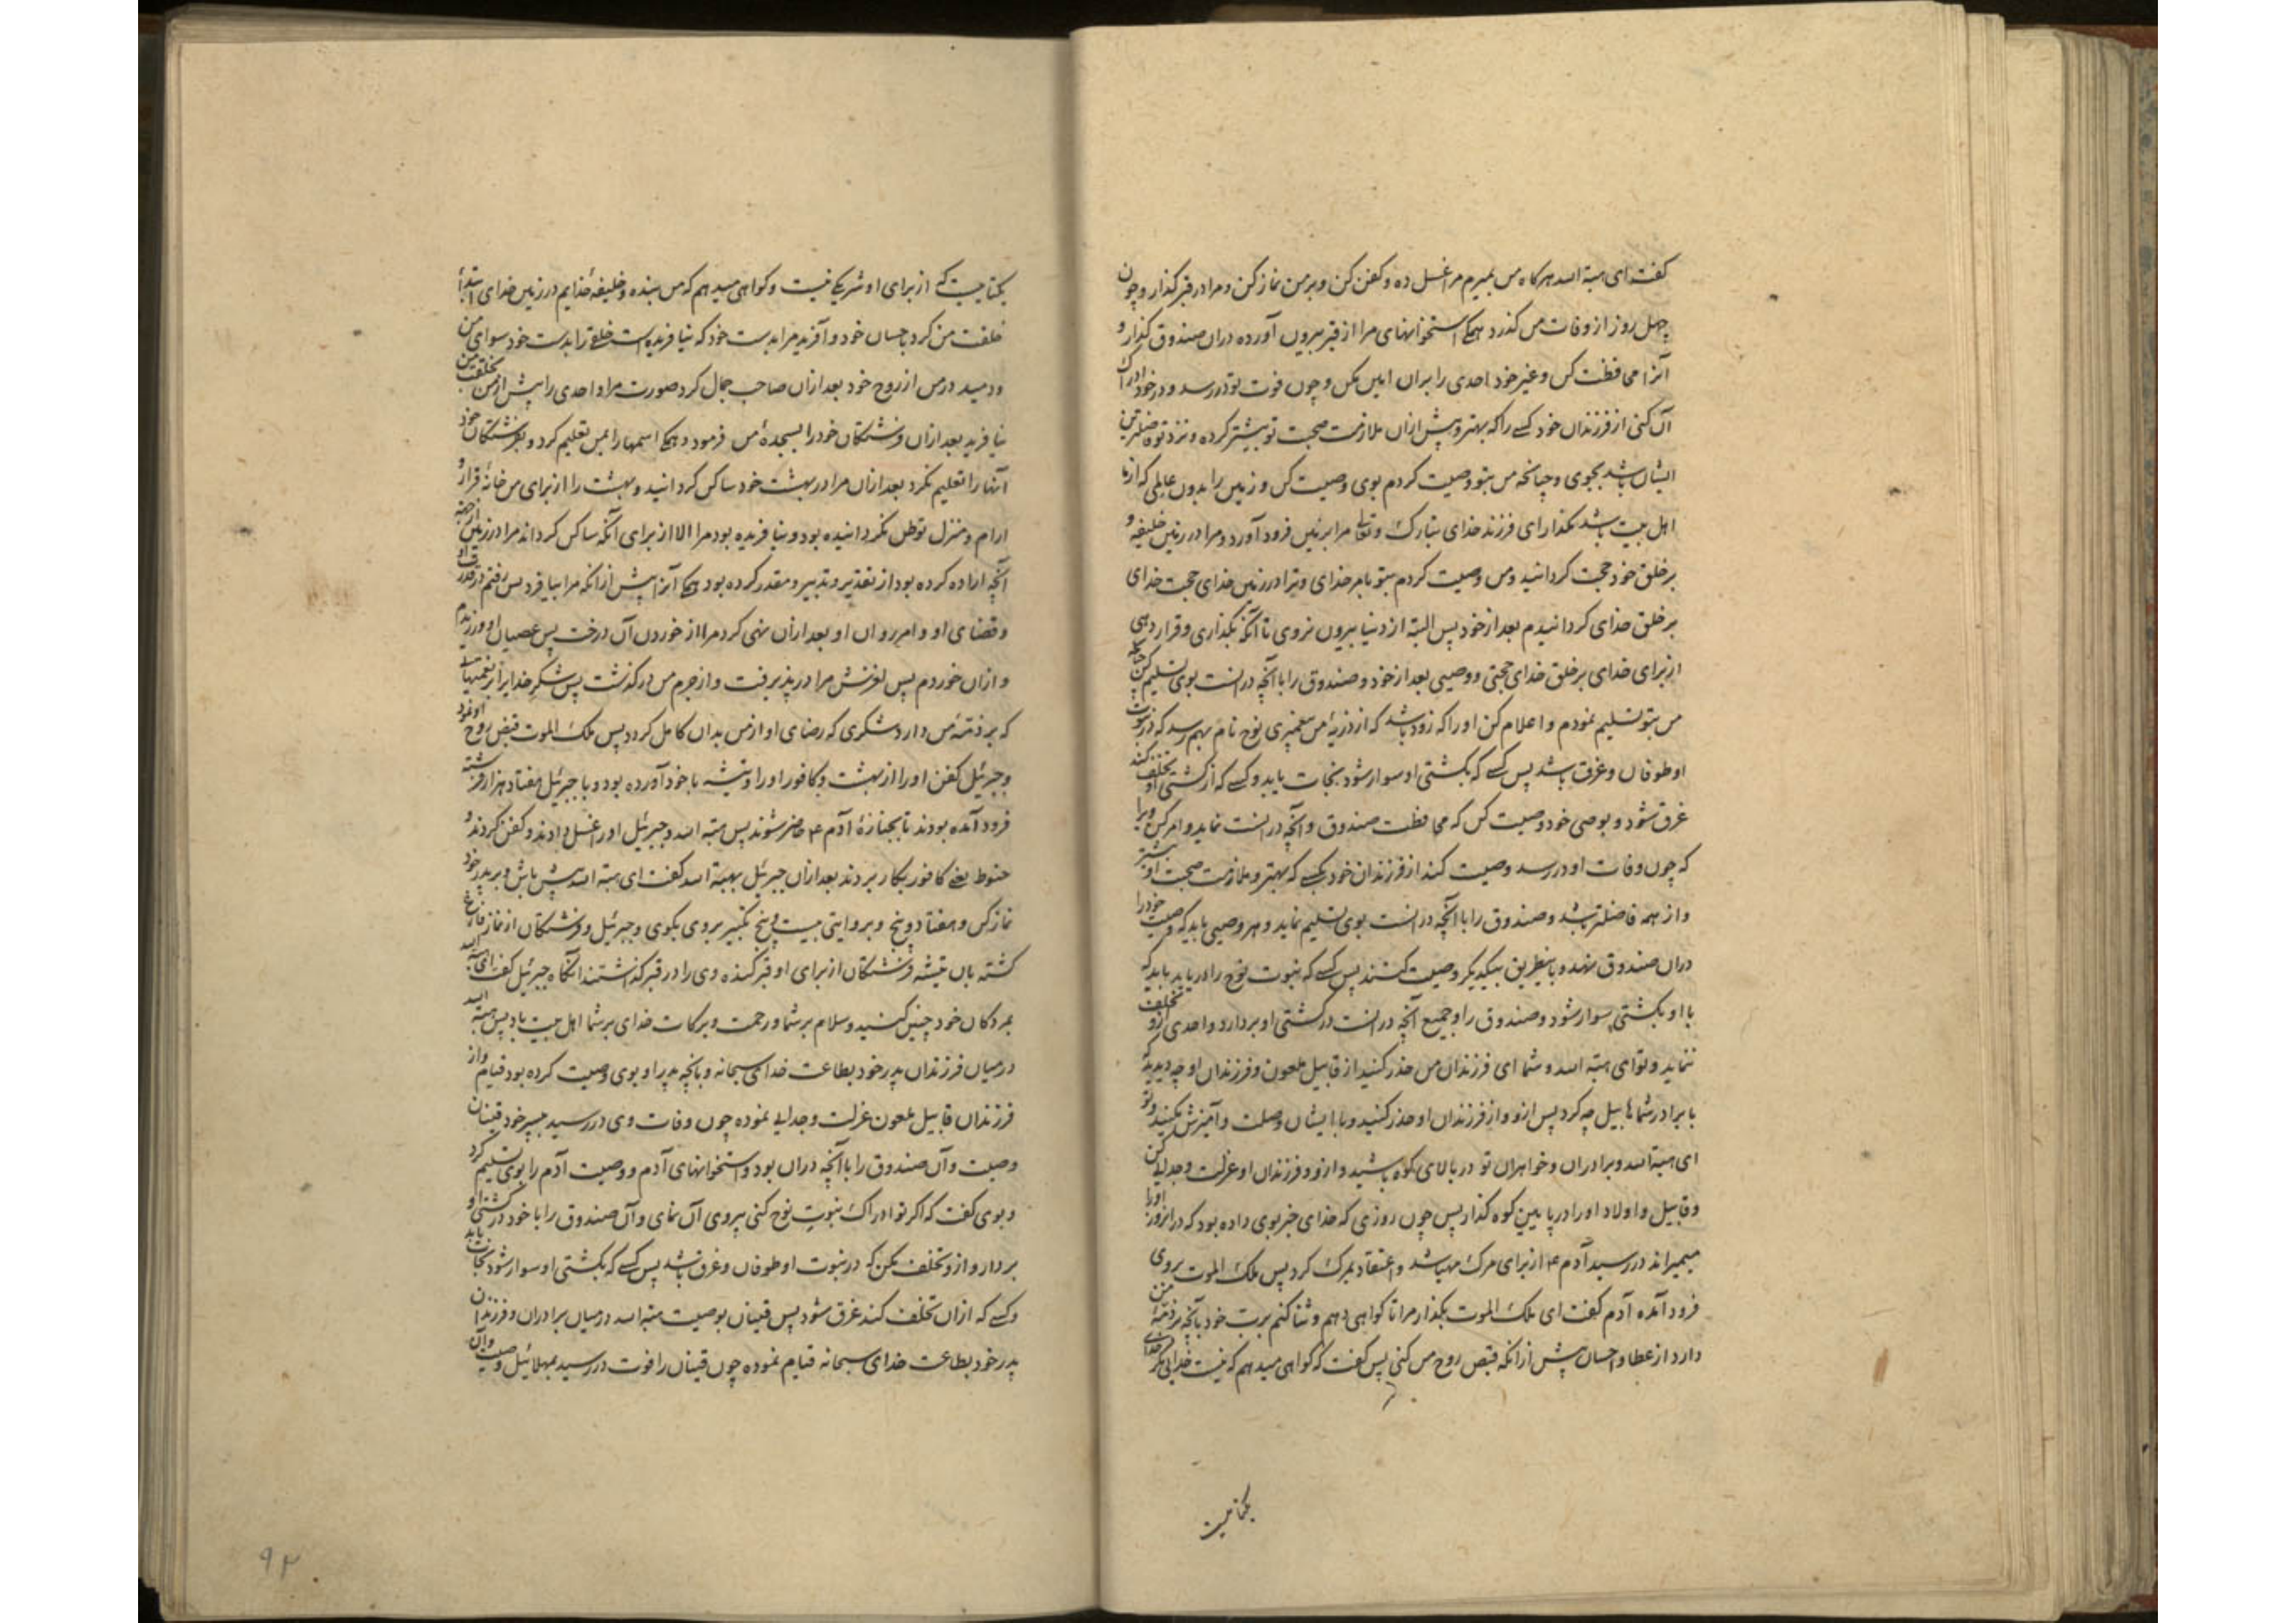 گفت ای هبة الله هرکاه من بمیرم مرا غسل ده و کفن کن و بر من نماز کن و مرا در قبر کذار و چون
چهل روز از وفات من کذرد همکی استخوانهای مرا از قبر بیرون آورده دران صندوق کذار و
آنرا محافظت کن و غیر خود احدی را بران امین مکن و چون فوت تو در رسد و در خود ادراک
آن کنی از فرزندان خود کسی را که بهتر و پیش ازان ملازمت صحبت تو بیشتر کرده و نزد تو فاضلترین
ایشان باشد بجوی و چنانچه من بتو وصیت کردم بوی وصیت کن و زمین را بدون عالمی که از ما
اهل بیت باشد مکذار ای فرزند خدای تبارک و تعالی مرا بر زمین فرود آورد و مرا در زمین خلیفه و
بر خلق خود حجت کردانید و من وصیت کردم بتو بامر خدای و ترا در زمین خدای حجت خدای
بر خلق خدای کردانیدم بعد از خود پس البته از دنیا بیرون نروی تا آنکه بکذاری و قرار دهی
از برای خدای بر خلق خدای حجتی و وصیی بعد از خود و صندوق را با آنچه در انست بوی تسلیم کن چنانکه
من بتو تسلیم نمودم و اعلام کن او را که زود باشد که از ذریهٔ من پیغمبری نوح نام بهم رسد که در نبوت
او طوفان و غرق باشد پس کسی که بکشتی او سوار شود نجات یابد و کسی که از کشتی او تخلف کند
غرق شود و بوصی خود وصیت کن که محافظت صندوق و آنچه در انست نماید و امر کن ویرا
که چون وفات او در رسد وصیت کند از فرزندان خود بکسی که بهتر و ملازمت صحبت او بیشتر
و از همه فاضلتر باشد و صندوق را با آنچه در انست بوی تسلیم نماید و هر وصیی باید که وصیت خود را
دران صندوق نهد و باینطریق بیکدیکر وصیت کنند پس کسی که نبوت نوح را دریابد باید که
با او بکشتی سوار شود و صندوق را و جمیع آنچه در انست در کشتی او بردارد و احدی ازو تخلف
ننماید و تو ای هبة الله و شما ای فرزندان من حذر کنید از قابیل ملعون و فرزندان او چه دیدید که
با برادر شما هابیل چه کرد پس ازو و از فرزندان او حذر کنید و با ایشان وصلت و آمیزش مکنید و تو
ای هبة الله و برادران و خواهران تو در بالای کوه باشید و ازو و فرزندان او عزلت و جدایی کن
و قابیل و اولاد او را در پایین کوه کذار پس چون روزی که خدای خبر بوی داده بود که در انروز او را
میمیراند در رسید آدم ع از برای مرک مهیا شد و اعتقاد بمرک کرد پس ملک الموت بروی
فرود آمده آدم کفت ای ملک الموت بکذار مرا تا کواهی دهم و ثنا کنم بر رب خود بآنچه بر ذمهٔ من
دارد از عطا و احسان پیش ازانکه قبض روح من کنی پس کفت که کواهی میدهم که نیست خدایی مکر خدای
یکتاییست
یکتاییست که از برای او شریکی نیست و کواهی میدهم که من بنده و خلیفهٔ خدایم در زمین خدای ابتدا
خلقت من کرد باحسان خود و آفرید مرا بدست خود که نیافریده است خلقی را بدست خود سوای من
و دمید در من از روح خود بعد ازان صاحب جمال کرد صورت مرا و احدی را پیش از من بخلقت من
نیافرید بعد ازان فرشتکان خود را بسجدهٔ من فرمود و همکی اسمها را بمن تعلیم کرد و بفرشتکان خود
آنها را تعلیم نکرد بعد ازان مرا در بهشت خود ساکن کردانید و بهشت را از برای من خانهٔ قرار و
ارام و منزل توطن نکردانیده بود و نیافریده بود مرا الا از برای آنکه ساکن کرداند مرا در زمین از جهة
آنچه اراده کرده بود از تقدیر و تدبیر و مقدر کرده بود همکی آنرا پیش ازانکه مرا بیافرد پس رفتم در قدرت او
و قضای او و امر روان او بعد ازان نهی کرد مرا از خوردن آن درخت پس عصیان او ورزیدم
و ازان خوردم پس لغزش مرا در پذیرفت و از جرم من در کذشت پس شکر خدایرا بر نعمتهایی
که بر ذمهٔ من دارد شکری که رضای او از من بدان کامل کردد پس ملک الموت قبض روح او نمود
و جبرئیل کفن او را از بهشت و کافور او را و تیشه با خود آورده بود و با جبرئیل هفتاد هزار فرشته
فرود آمده بودند تا بجنازهٔ آدم ع حاضر شوند پس هبة الله و جبرئیل او را غسل دادند و کفن کردند و
حنوط یعنی کافور بکار بردند بعد ازان جبرئیل بهبة الله کفت ای هبة الله پیش باش و بر پدر خود
نماز کن و هفتاد و پنج و بروایتی بیست و پنج تکبیر بروی بکوی و جبرئیل و فرشتکان از نماز فارغ
کشته بان تیشه فرشتکان از برای او قبر کنده وی را در قبر کذاشتند انکاه جبرئیل کفت ای هبة الله
بمردکان خود چنین کنید و سلام بر شما و رحمت و برکات خدای بر شما اهل بیت باد پس هبة الله
در میان فرزندان پدر خود بطاعت خدای سبحانه و بانچه پدر او بوی وصیت کرده بود قیام و از
فرزندان قابیل ملعون عزلت و جدایی نموده چون وفات وی در رسید بپسر خود قینان
وصیت و آن صندوق را با آنچه دران بود و استخوانهای آدم و وصیت آدم را بوی تسلیم کرد
و بوی کفت که اکر تو ادراک نبوت نوح کنی پیروی آن نمای و آن صندوق را با خود در کشتی او
بردار و ازو تخلف مکن که در نبوت او طوفان و غرق باشد پس کسی که بکشتی او سوار شود نجات یابد
و کسی که ازان تخلف کند غرق شود پس قینان بوصیت هبة الله در میان برادران و فرزندان
پدر خود بطاعت خدای سبحانه قیام نموده چون قینان را فوت در رسید بمهلائیل وصیت و آن
۹۲